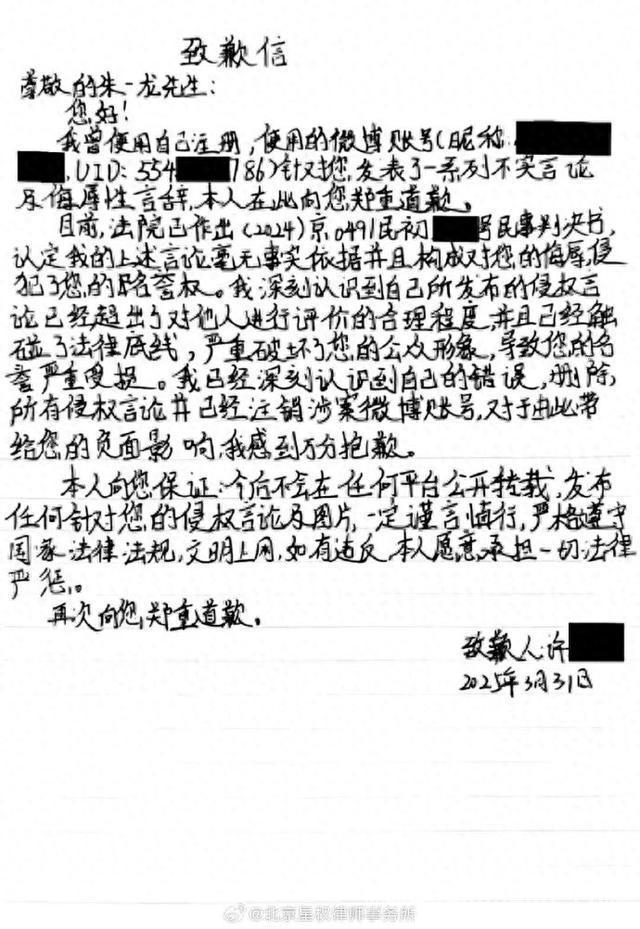 致歉信
尊敬的朱一龙先生：
您好！
我曾使用自己注册，使用的微博账号(昵称
，UID：554 786)针对您，发表了一系列不实言论
及侮辱性言辞，本人在此向您郑重道歉。
目前，法院已作出(2024)京0491民初 号民事判决书，
认定我的上述言论毫无事实依据并且构成对您的侮辱，侵
犯了您的名誉权。我深刻认识到自己所发布的侵权言
论已经超出了对他人进行评价的合理程度，并且已经触
碰了法律底线，严重破坏了您的公众形象，导致您的名
誉严重受损。我已经深刻认识到自己的错误，删除
所有侵权言论并已经注销涉案微博账号，对于由此带
给您的负面影响，我感到万分抱歉。
本人向您保证：今后不会在任何平台公开转载，发布
任何针对您的侵权言论及图片，一定谨言慎行，严格遵守
国家法律法规，文明上网，如有违反，本人愿意承担一切法律
严惩。
再次向您郑重道歉。
致歉人：许
2025年3月31日
@北京星权律师事务所